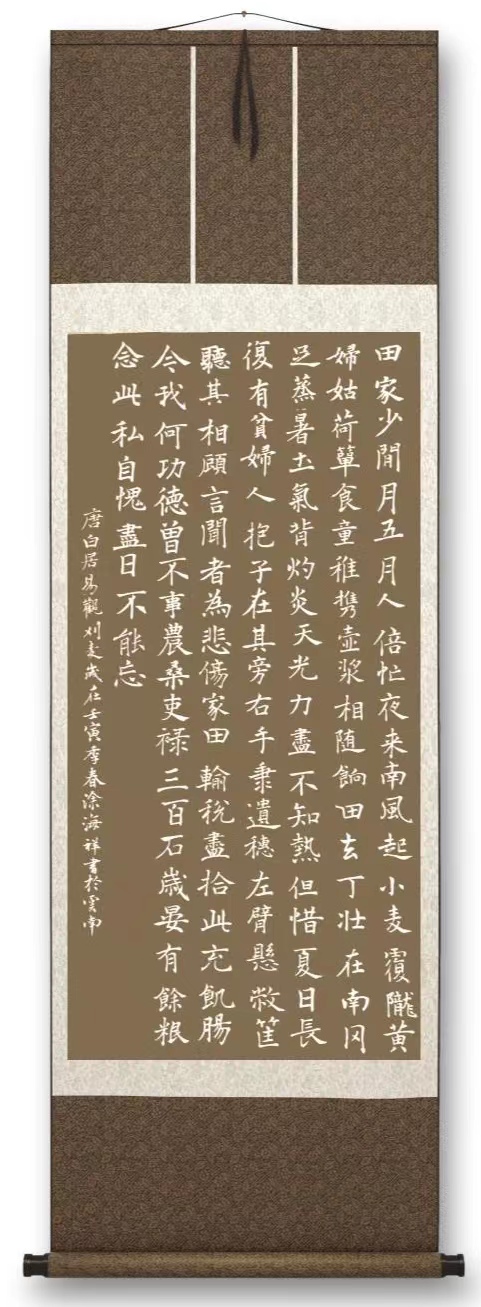 田家少閒月五月人倍忙夜来南風起小麦覆隴黄
婦姑荷簞食童稚携壺浆相随餉田去丁壮在南冈
足蒸暑土氣背灼炎天光力盡不知熱但惜夏日長
復有貧婦人抱子在其旁右手秉遺穗左臂懸敝筐
聽其相顧言聞者為悲傷家田輸税盡拾此充飢腸
今我何功德曽不事農桑吏禄三百石歲晏有餘粮
念此私自愧盡日不能忘
唐白居易觀刈麦歲在壬寅季春涂海祥書於雲南